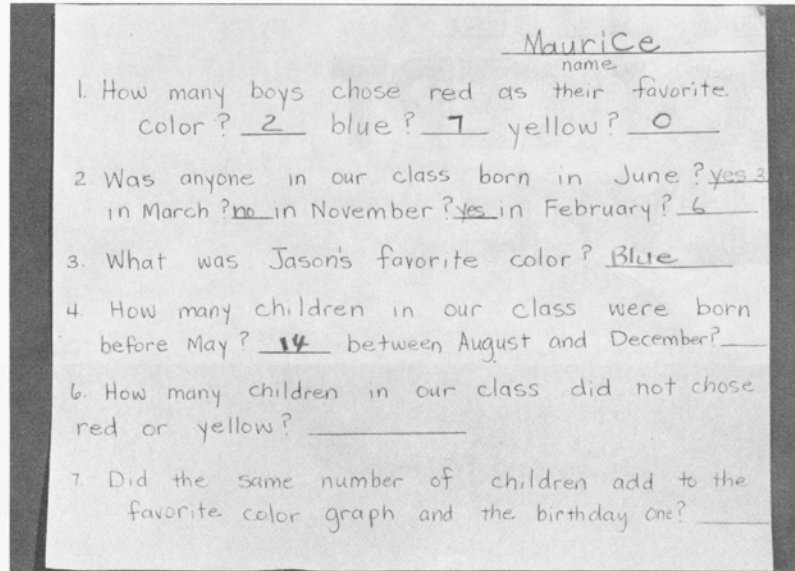 Maurice
name
1. How many boys chose red as their favorite
color? 2 blue? 7 yellow? 0
2 Was anyone in our class born in June? yes 3
in March? no in November? yes in February? 6
3. What was Jason's favorite color? Blue
4. How many children in our class were born
before May? 14 between August and December?
6. How many children in our class did not chose
red or yellow?
7. Did the same number of children add to the
favorite color graph and the birthday one?